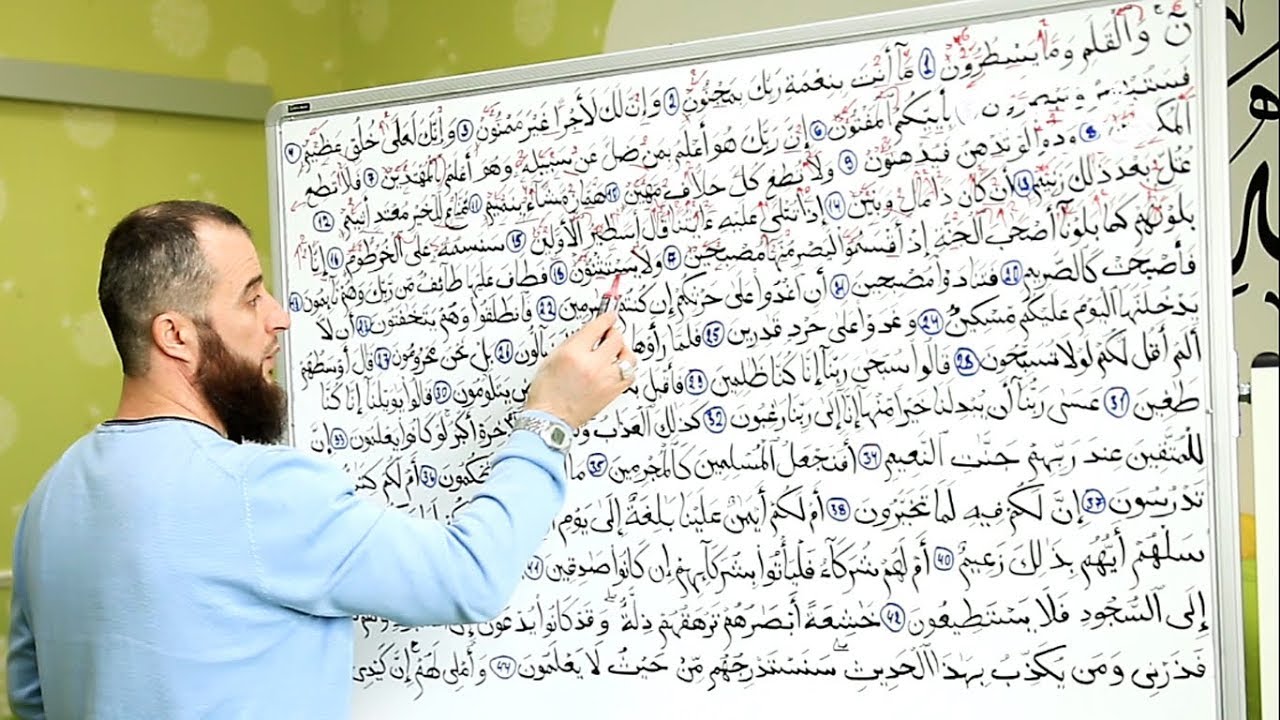 نٓ وَٱلْقَلَمِ وَمَا يَسْطُرُونَ 1 مَآ أَنتَ بِنِعْمَةِ رَبِّكَ بِمَجْنُونٍ 2 وَإِنَّ لَكَ لَأَجْرًا غَيْرَ مَمْنُونٍ 3 وَإِنَّكَ لَعَلَىٰ خُلُقٍ عَظِيمٍ 4
فَسَتُبْصِرُ وَيُبْصِرُونَ بِأَييِّكُمُ ٱلْمَفْتُونُ 6 إِنَّ رَبَّكَ هُوَ أَعْلَمُ بِمَن ضَلَّ عَن سَبِيلِهِۦ وَهُوَ أَعْلَمُ بِٱلْمُهْتَدِينَ 7 فَلَا تُطِعِ
8 وَدُّوا۟ لَوْ تُدْهِنُ فَيُدْهِنُونَ 9 وَلَا تُطِعْ كُلَّ حَلَّافٍ مَّهِينٍ 10 هَمَّازٍ مَّشَّآءٍ بِنَمِيمٍ 11 مَّنَّاعٍ لِّلْخَيْرِ مُعْتَدٍ أَثِيمٍ 12
عُتُلٍّۭ بَعْدَ ذَٰلِكَ زَنِيمٍ 13 أَن كَانَ ذَا مَالٍ وَبَنِينَ 14 إِذَا تُتْلَىٰ عَلَيْهِ ءَايَٰتُنَا قَالَ أَسَٰطِيرُ ٱلْأَوَّلِينَ 15 سَنَسِمُهُۥ عَلَى ٱلْخُرْطُومِ 16 إِنَّا
بَلَوْنَٰهُمْ كَمَا بَلَوْنَآ أَصْحَٰبَ ٱلْجَنَّةِ إِذْ أَقْسَمُوا۟ لَيَصْرِمُنَّهَا مُصْبِحِينَ 17 وَلَا يَسْتَثْنُونَ 18 فَطَافَ عَلَيْهَا طَآئِفٌ مِّن رَّبِّكَ وَهُمْ نَآئِمُونَ 19
فَأَصْبَحَتْ كَٱلصَّرِيمِ 20 فَتَنَادَوْا۟ مُصْبِحِينَ 21 أَنِ ٱغْدُوا۟ عَلَىٰ حَرْثِكُمْ إِن كُنتُمْ 22 فَٱنطَلَقُوا۟ وَهُمْ يَتَخَٰفَتُونَ 23 أَن لَّا
يَدْخُلَنَّهَا ٱلْيَوْمَ عَلَيْكُم مِّسْكِينٌ 24 وَغَدَوْا۟ عَلَىٰ حَرْدٍ قَٰدِرِينَ 25 فَلَمَّا رَأَوْهَا 26 بَلْ نَحْنُ مَحْرُومُونَ 27 قَالَ أَوْسَطُهُمْ
أَلَمْ أَقُل لَّكُمْ لَوْلَا تُسَبِّحُونَ 28 قَالُوا۟ سُبْحَٰنَ رَبِّنَآ إِنَّا كُنَّا ظَٰلِمِينَ 29 فَأَقْبَلَ يَتَلَٰوَمُونَ 30 قَالُوا۟ يَٰوَيْلَنَآ إِنَّا كُنَّا
طَٰغِينَ 31 عَسَىٰ رَبُّنَآ أَن يُبْدِلَنَا خَيْرًا مِّنْهَآ إِنَّآ إِلَىٰ رَبِّنَا رَٰغِبُونَ 32 كَذَٰلِكَ ٱلْعَذَابُ أَكْبَرُ لَوْ كَانُوا۟ يَعْلَمُونَ 33 إِنَّ
لِلْمُتَّقِينَ عِندَ رَبِّهِمْ جَنَّٰتِ ٱلنَّعِيمِ 34 أَفَنَجْعَلُ ٱلْمُسْلِمِينَ كَٱلْمُجْرِمِينَ 35 مَا تَحْكُمُونَ 36 أَمْ لَكُمْ
تَدْرُسُونَ 37 إِنَّ لَكُمْ فِيهِ لَمَا تَخَيَّرُونَ 38 أَمْ لَكُمْ أَيْمَٰنٌ عَلَيْنَا بَٰلِغَةٌ إِلَىٰ يَوْمِ
سَلْهُمْ أَيُّهُم بِذَٰلِكَ زَعِيمٌ 40 أَمْ لَهُمْ شُرَكَآءُ فَلْيَأْتُوا۟ بِشُرَكَآئِهِمْ إِن كَانُوا۟ صَٰدِقِينَ 41
إِلَى ٱلسُّجُودِ فَلَا يَسْتَطِيعُونَ 42 خَٰشِعَةً أَبْصَٰرُهُمْ تَرْهَقُهُمْ ذِلَّةٌ وَقَدْ كَانُوا۟ يُدْعَوْنَ
فَذَرْنِى وَمَن يُكَذِّبُ بِهَٰذَا ٱلْحَدِيثِ سَنَسْتَدْرِجُهُم مِّنْ حَيْثُ لَا يَعْلَمُونَ 44 وَأُمْلِى لَهُمْ إِنَّ كَيْدِى